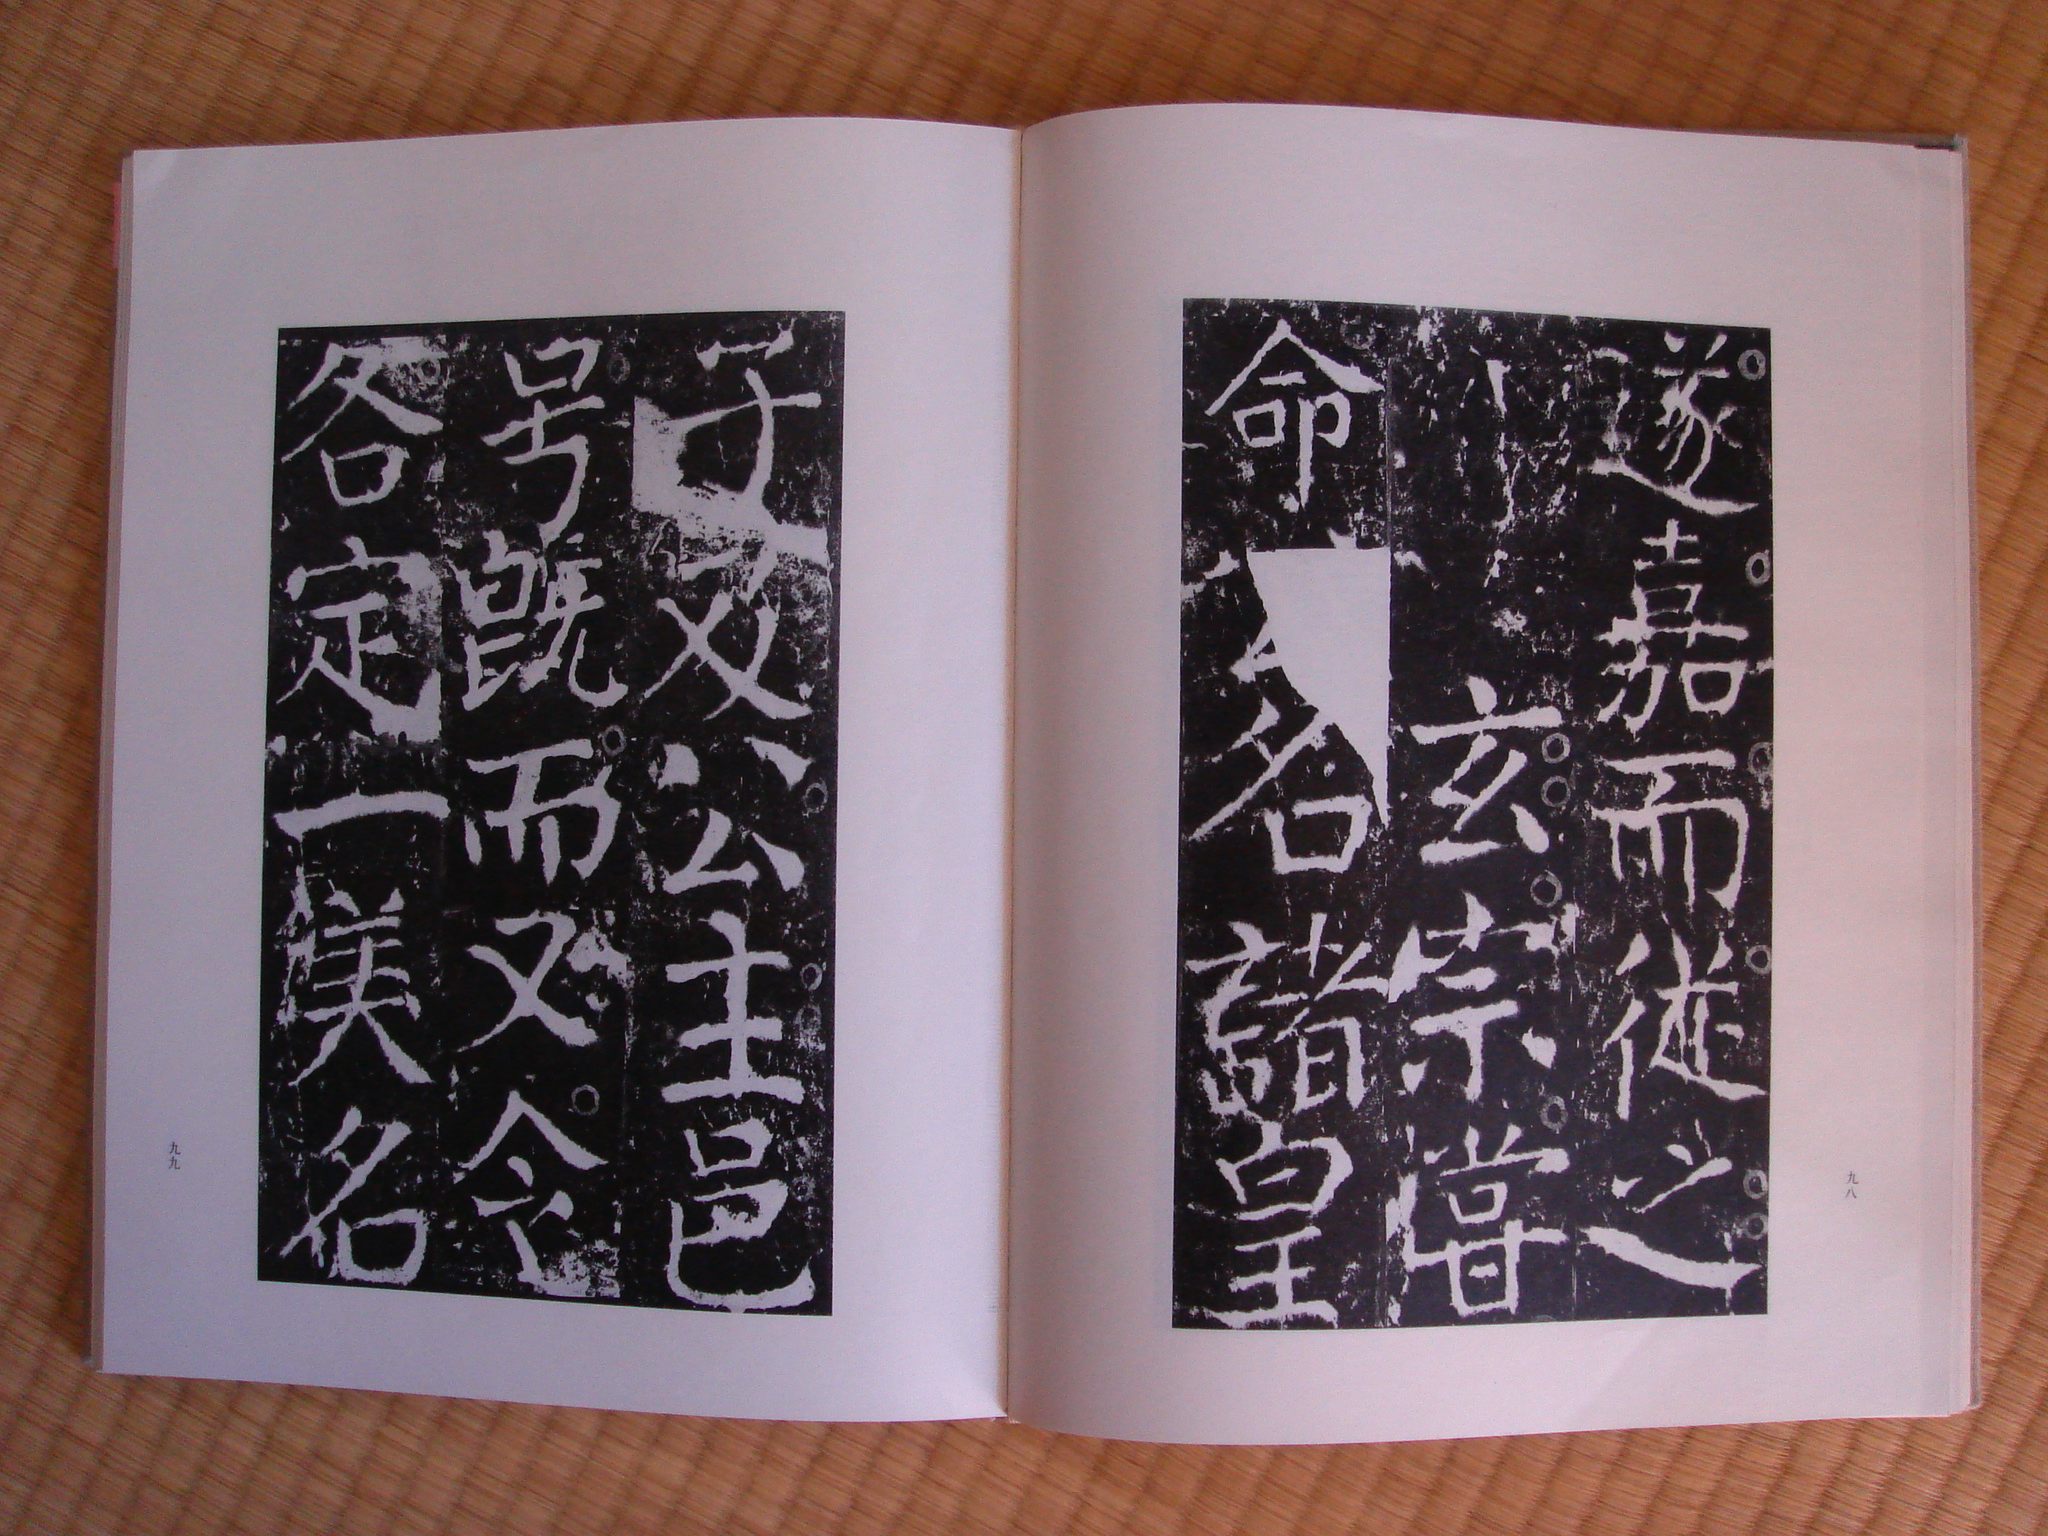 遂嘉而從之
玄宗嘗
命名諸皇
九八
子及公主邑
号既而又令
各定一美名
九九